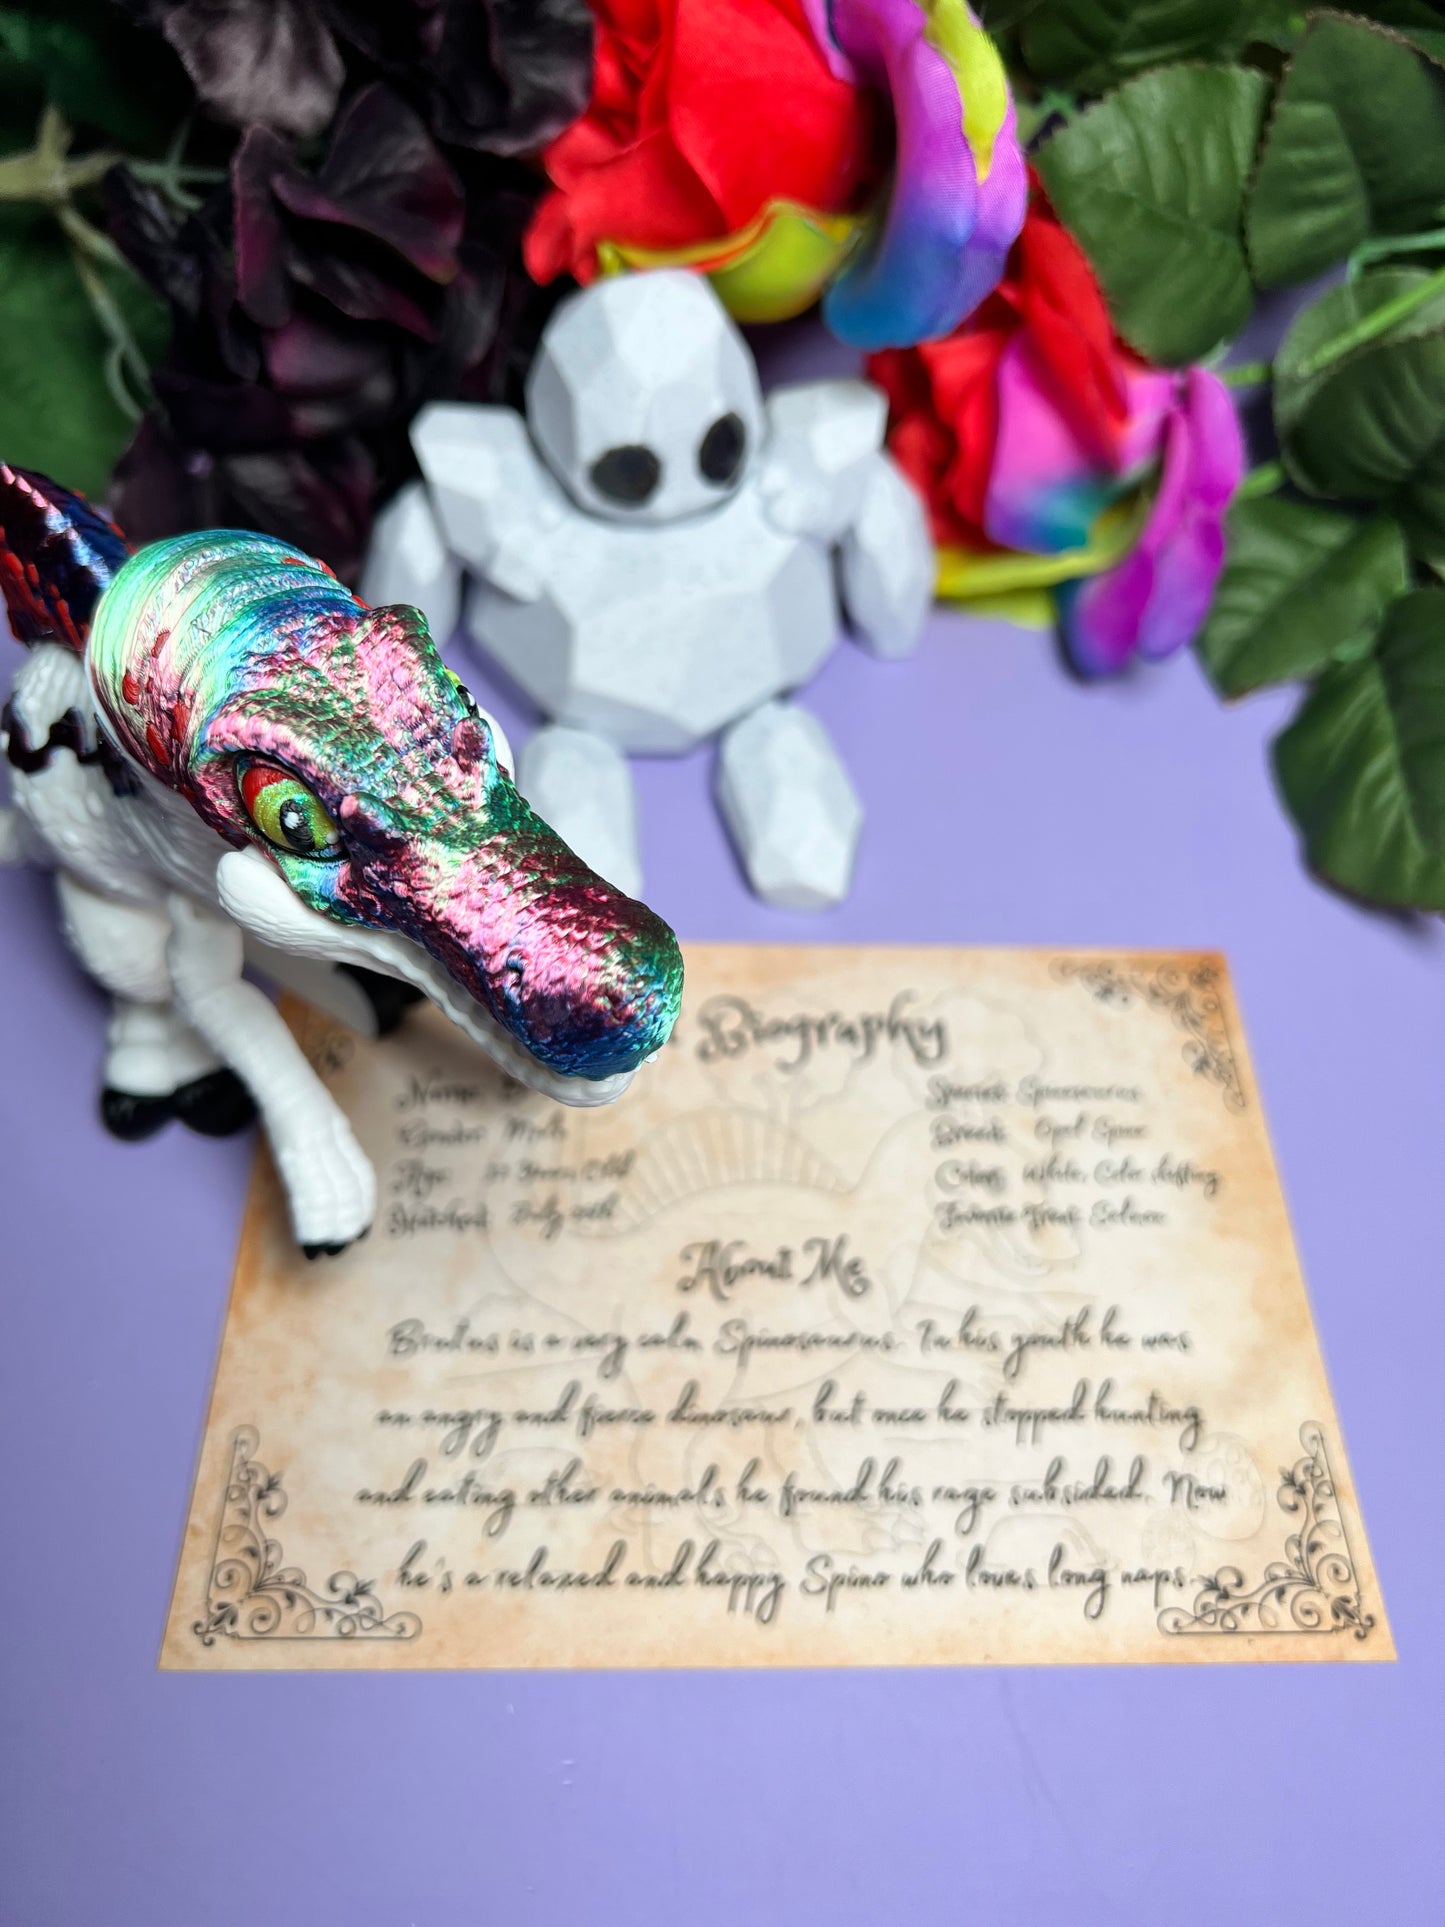 Biography
Name:
Species: Spinosaurus
Gender: Male
Breed: Opal Spino
Age: Years Old
Color: White, Color shifting
Hatched: July
Favorite Treat:
About Me
Brutus is a very calm Spinosaurus. In his youth he was
an angry and fierce dinosaur, but once he stopped hunting
and eating other animals he found his rage subsided. Now
he's a relaxed and happy Spino who loves long naps.